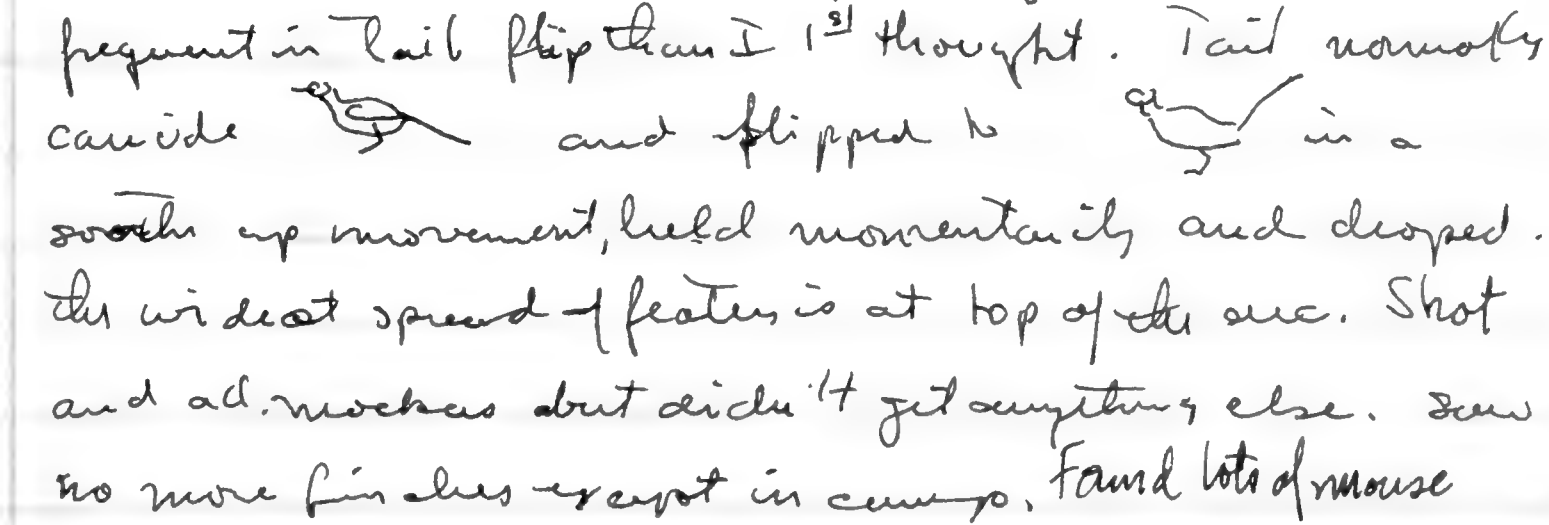 frequent in tail flip than I 1st thought. Tail normally
carried and flipped to in a
smooth up movement, held momentarily and droped.
the widest spread of feathers is at top of the arc. Shot
and ad. mockers but didn't get anything else. Saw
no more finches except in camp. Found lots of mouse